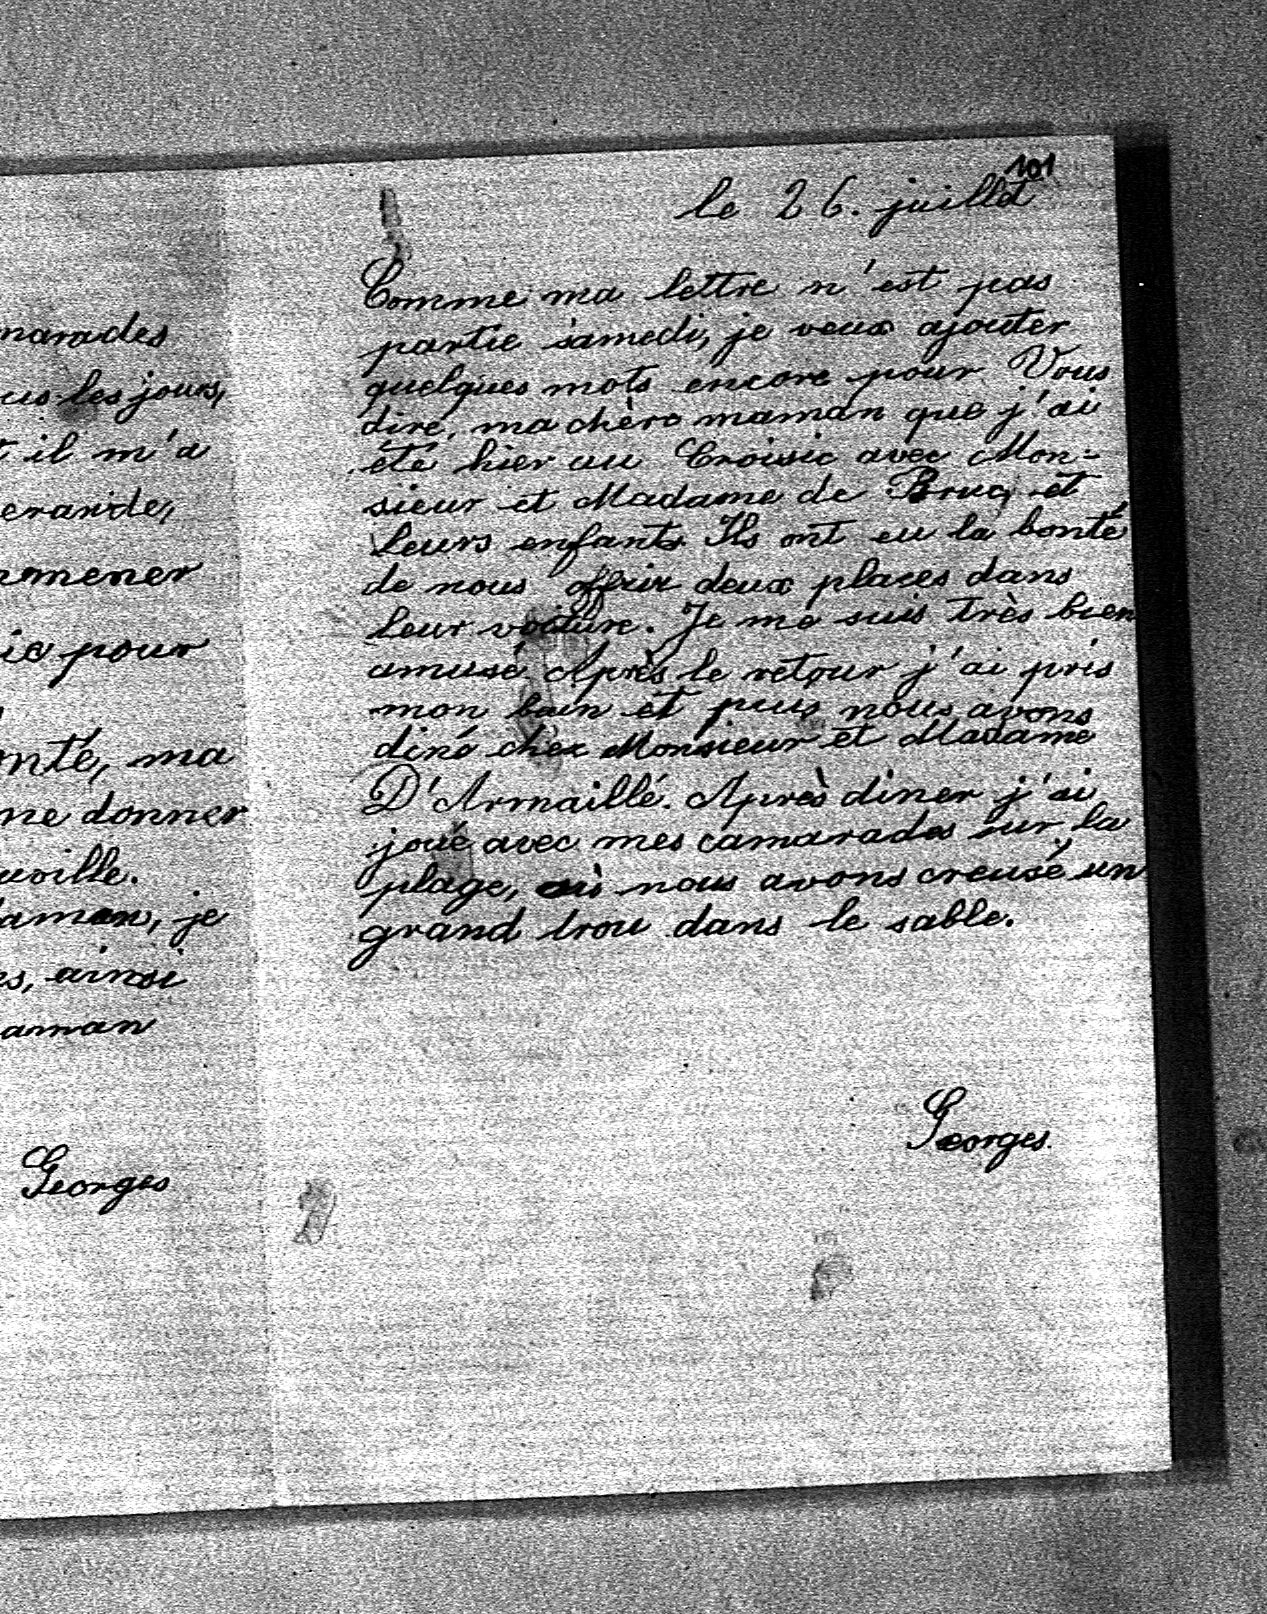 marades
us les jours,
t il m'a
erande,
mener
ic pour
nté, ma
me donner
uville.
aman, je
es, ainsi
aman
Georges
101
le 26. juillet
Comme ma lettre n'est pas
partie samedi, je veux ajouter
quelques mots encore pour Vous
dire, ma chère maman que j'ai
été hier au Croisic avec Mon=
sieur et Madame de Bruc, et
leurs enfants. Ils ont eu la bonté
de nous offrir deux places dans
leur voiture. Je me suis très bien
amusé. Après le retour j'ai pris
mon bain et puis nous avons
diné chez Monsieur et Madame
D'Armaillé. Après diner j'ai
joué avec mes camarades sur la
plage, où nous avons creusé un
grand trou dans le sable.
Georges.